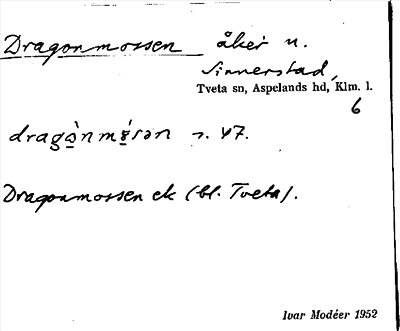 Dragonmossen åker n.
Sinnerstad,
Tveta sn, Aspelands hd, Klm. l.
6
Dragonmossen ek (bl. Tveta).
Ivar Modéer 1952